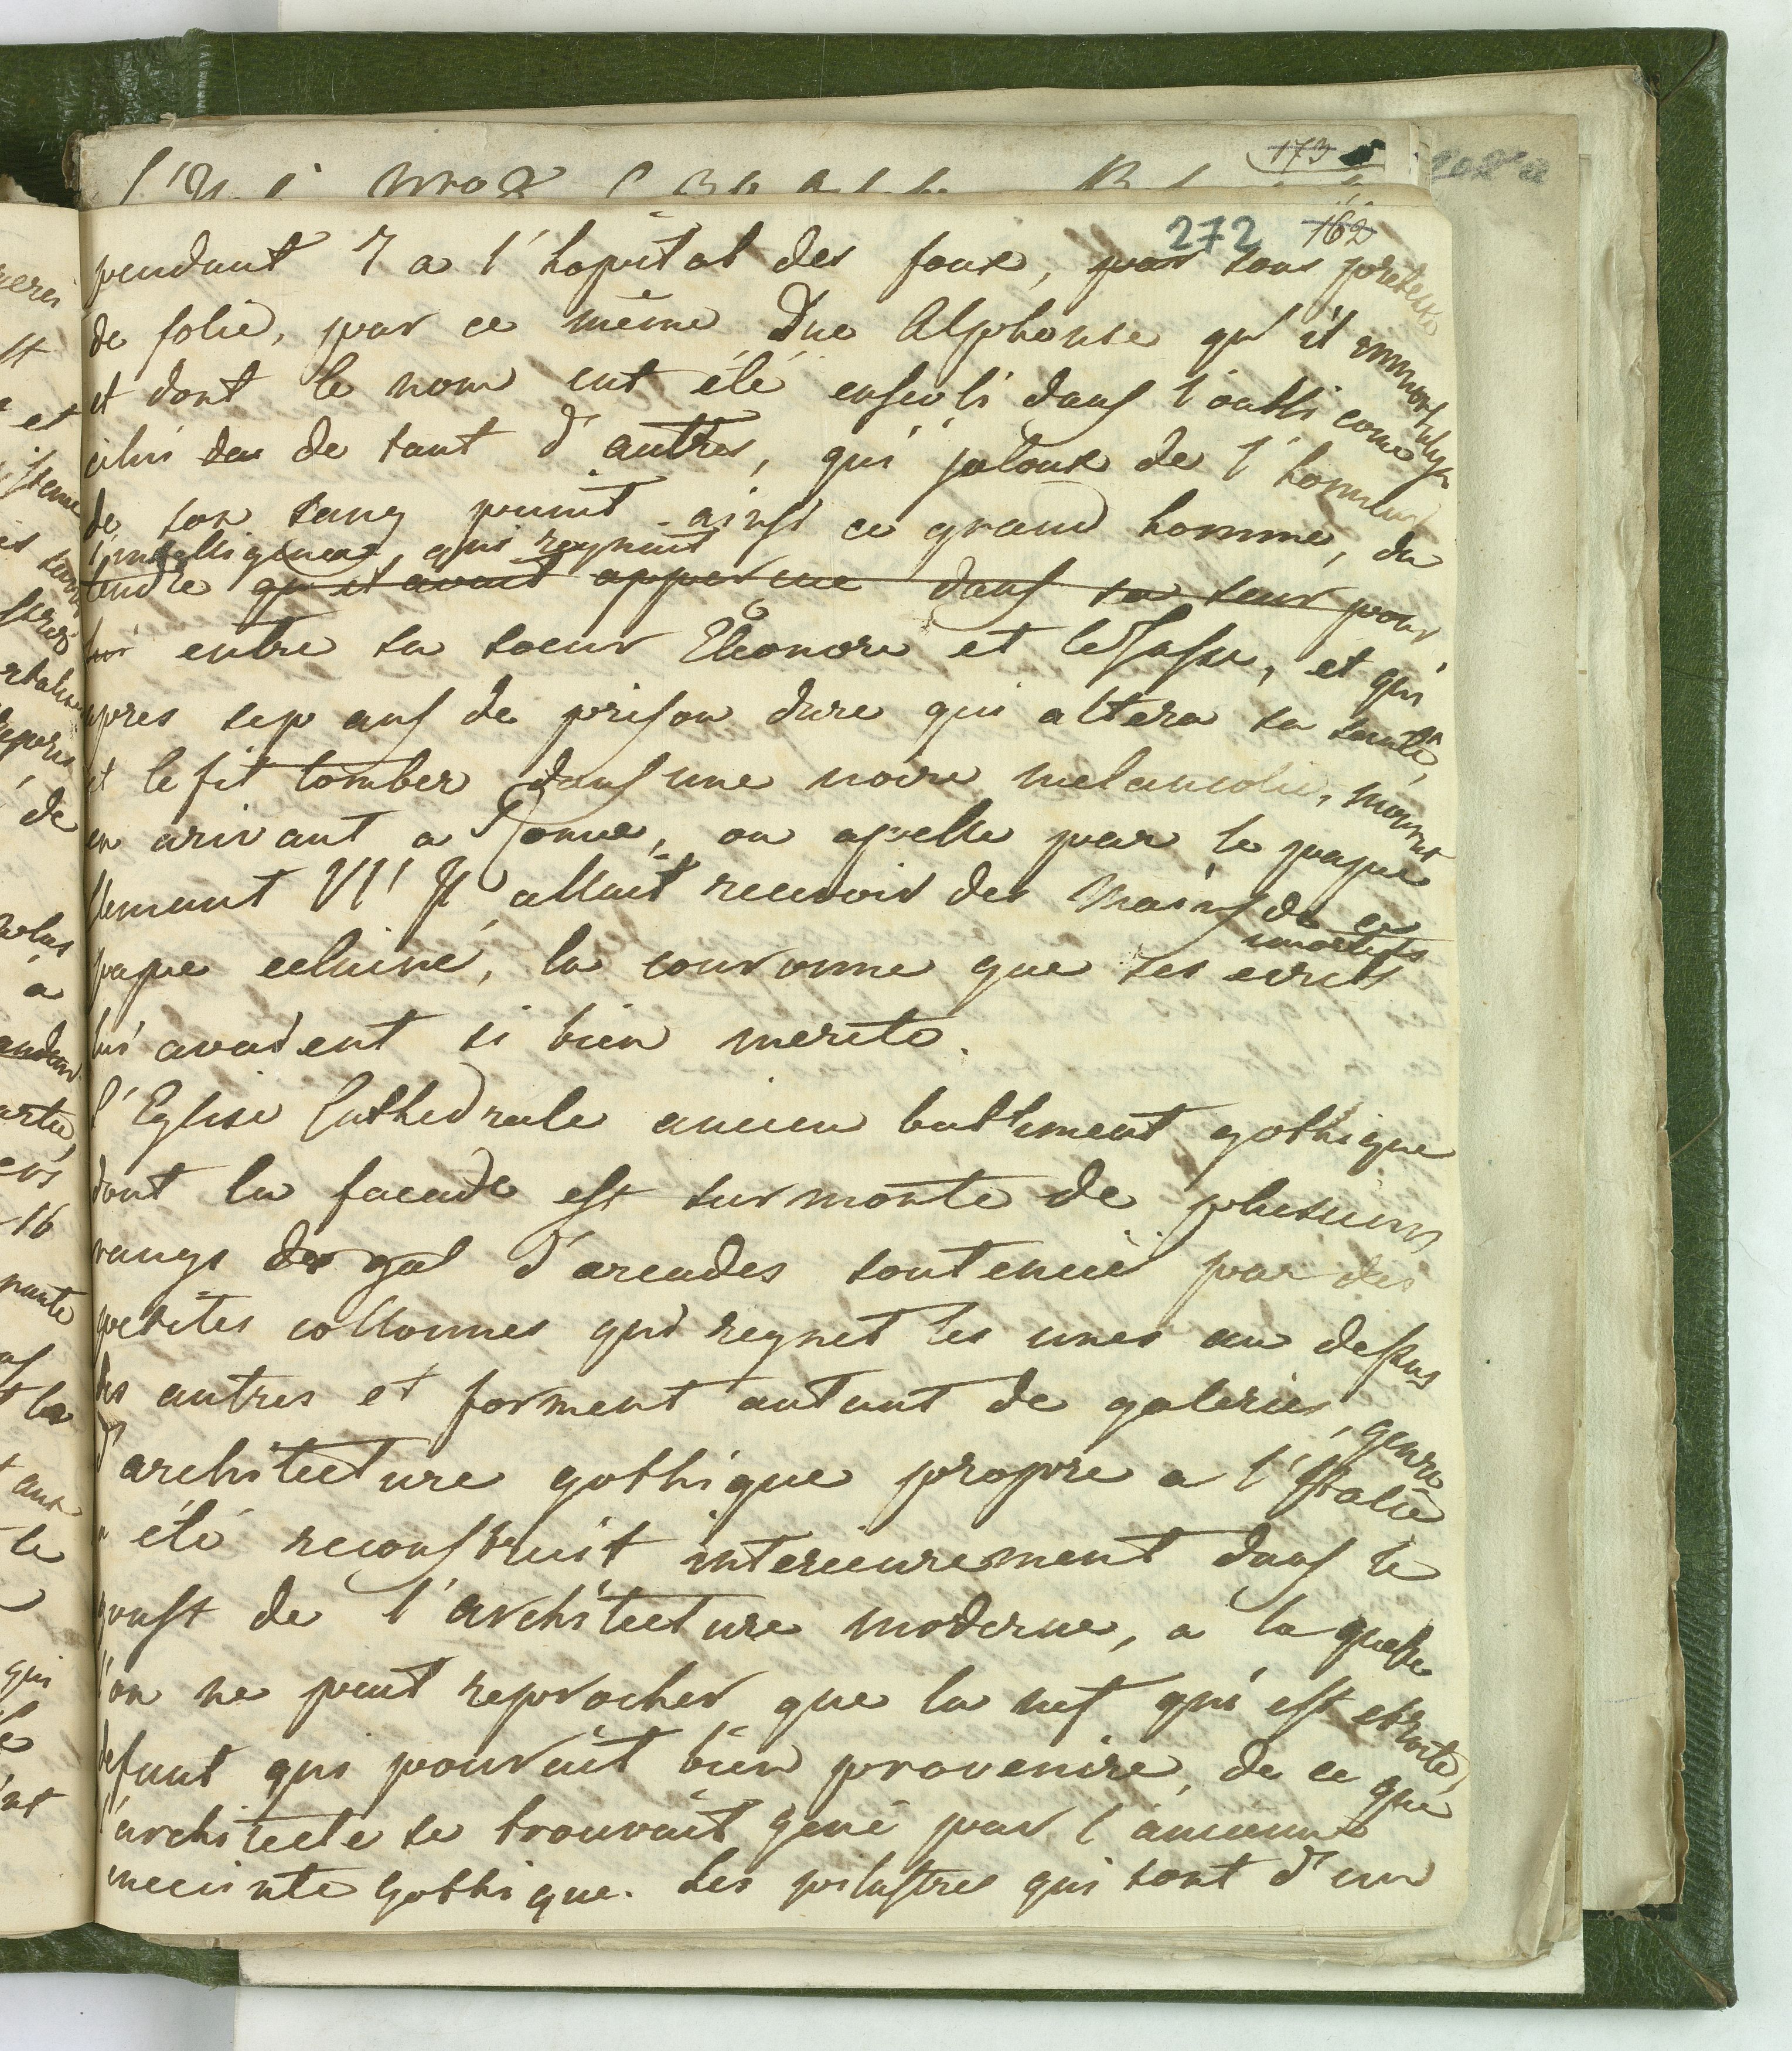 173
272 162
pendant 7 a l'hopital des foux, par sous pretexte
de folie, par ce même Duc Alphonse qu'il immortalisa
et dont le nom eut été enseveli dans l'oubli come
celui de tant d'autres, qui jaloux de l'honneur
de son sang punit ainsi ce grand homme, du
l'intelligence, qui regnait
tendre qu'il avait appercue dans sa seur pour
lui entre sa soeur Eleonore et le Tasse, et qui
apres sep ans de prison dure qui altera sa santé,
et le fit tomber dans une noire melancolie, mourut
en arivant a Rome, ou apelle par le pape
Clemant VI! Il allait recevoir des mains de ce
immortels
pape eclairé, la couronne que ses ecrits
lui avaient si bien merite.
l'Eglise Cathedrale ancien battiment gothique
dont la facade est surmonte de plusieurs
rangs de gal d'arcades soutenue par des
petites collonnes qui regnet les unes au dessus
des autres et forment autant de galeries, genre
d'architecture gothique propre a l'Italie
a été reconstruit interieurement dans le
goust de l'architecture moderne, a la quelle
l'on ne peut reprocher que la nef qui est etroite,
defaut qui pourait bien provenire, de ce que
l'architecte se trouvait gené par l'ancienne
enceinte gothique. Les pilastres qui sont d'un